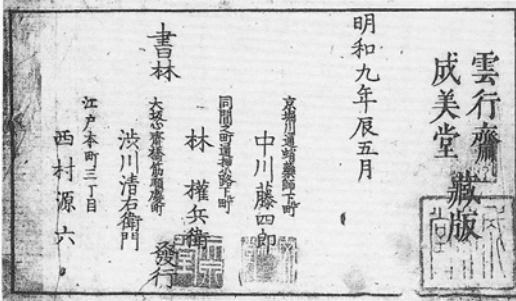 雲行齋
成美堂
藏版
明和九年辰五月
京堀川通蛸藥師下町
中川藤四郎
同間之町通押小路下町
林權兵衛
書林
大坂心齋橋筋順慶町
渋川清右衛門
江戸本町三丁目
西村源六
發行